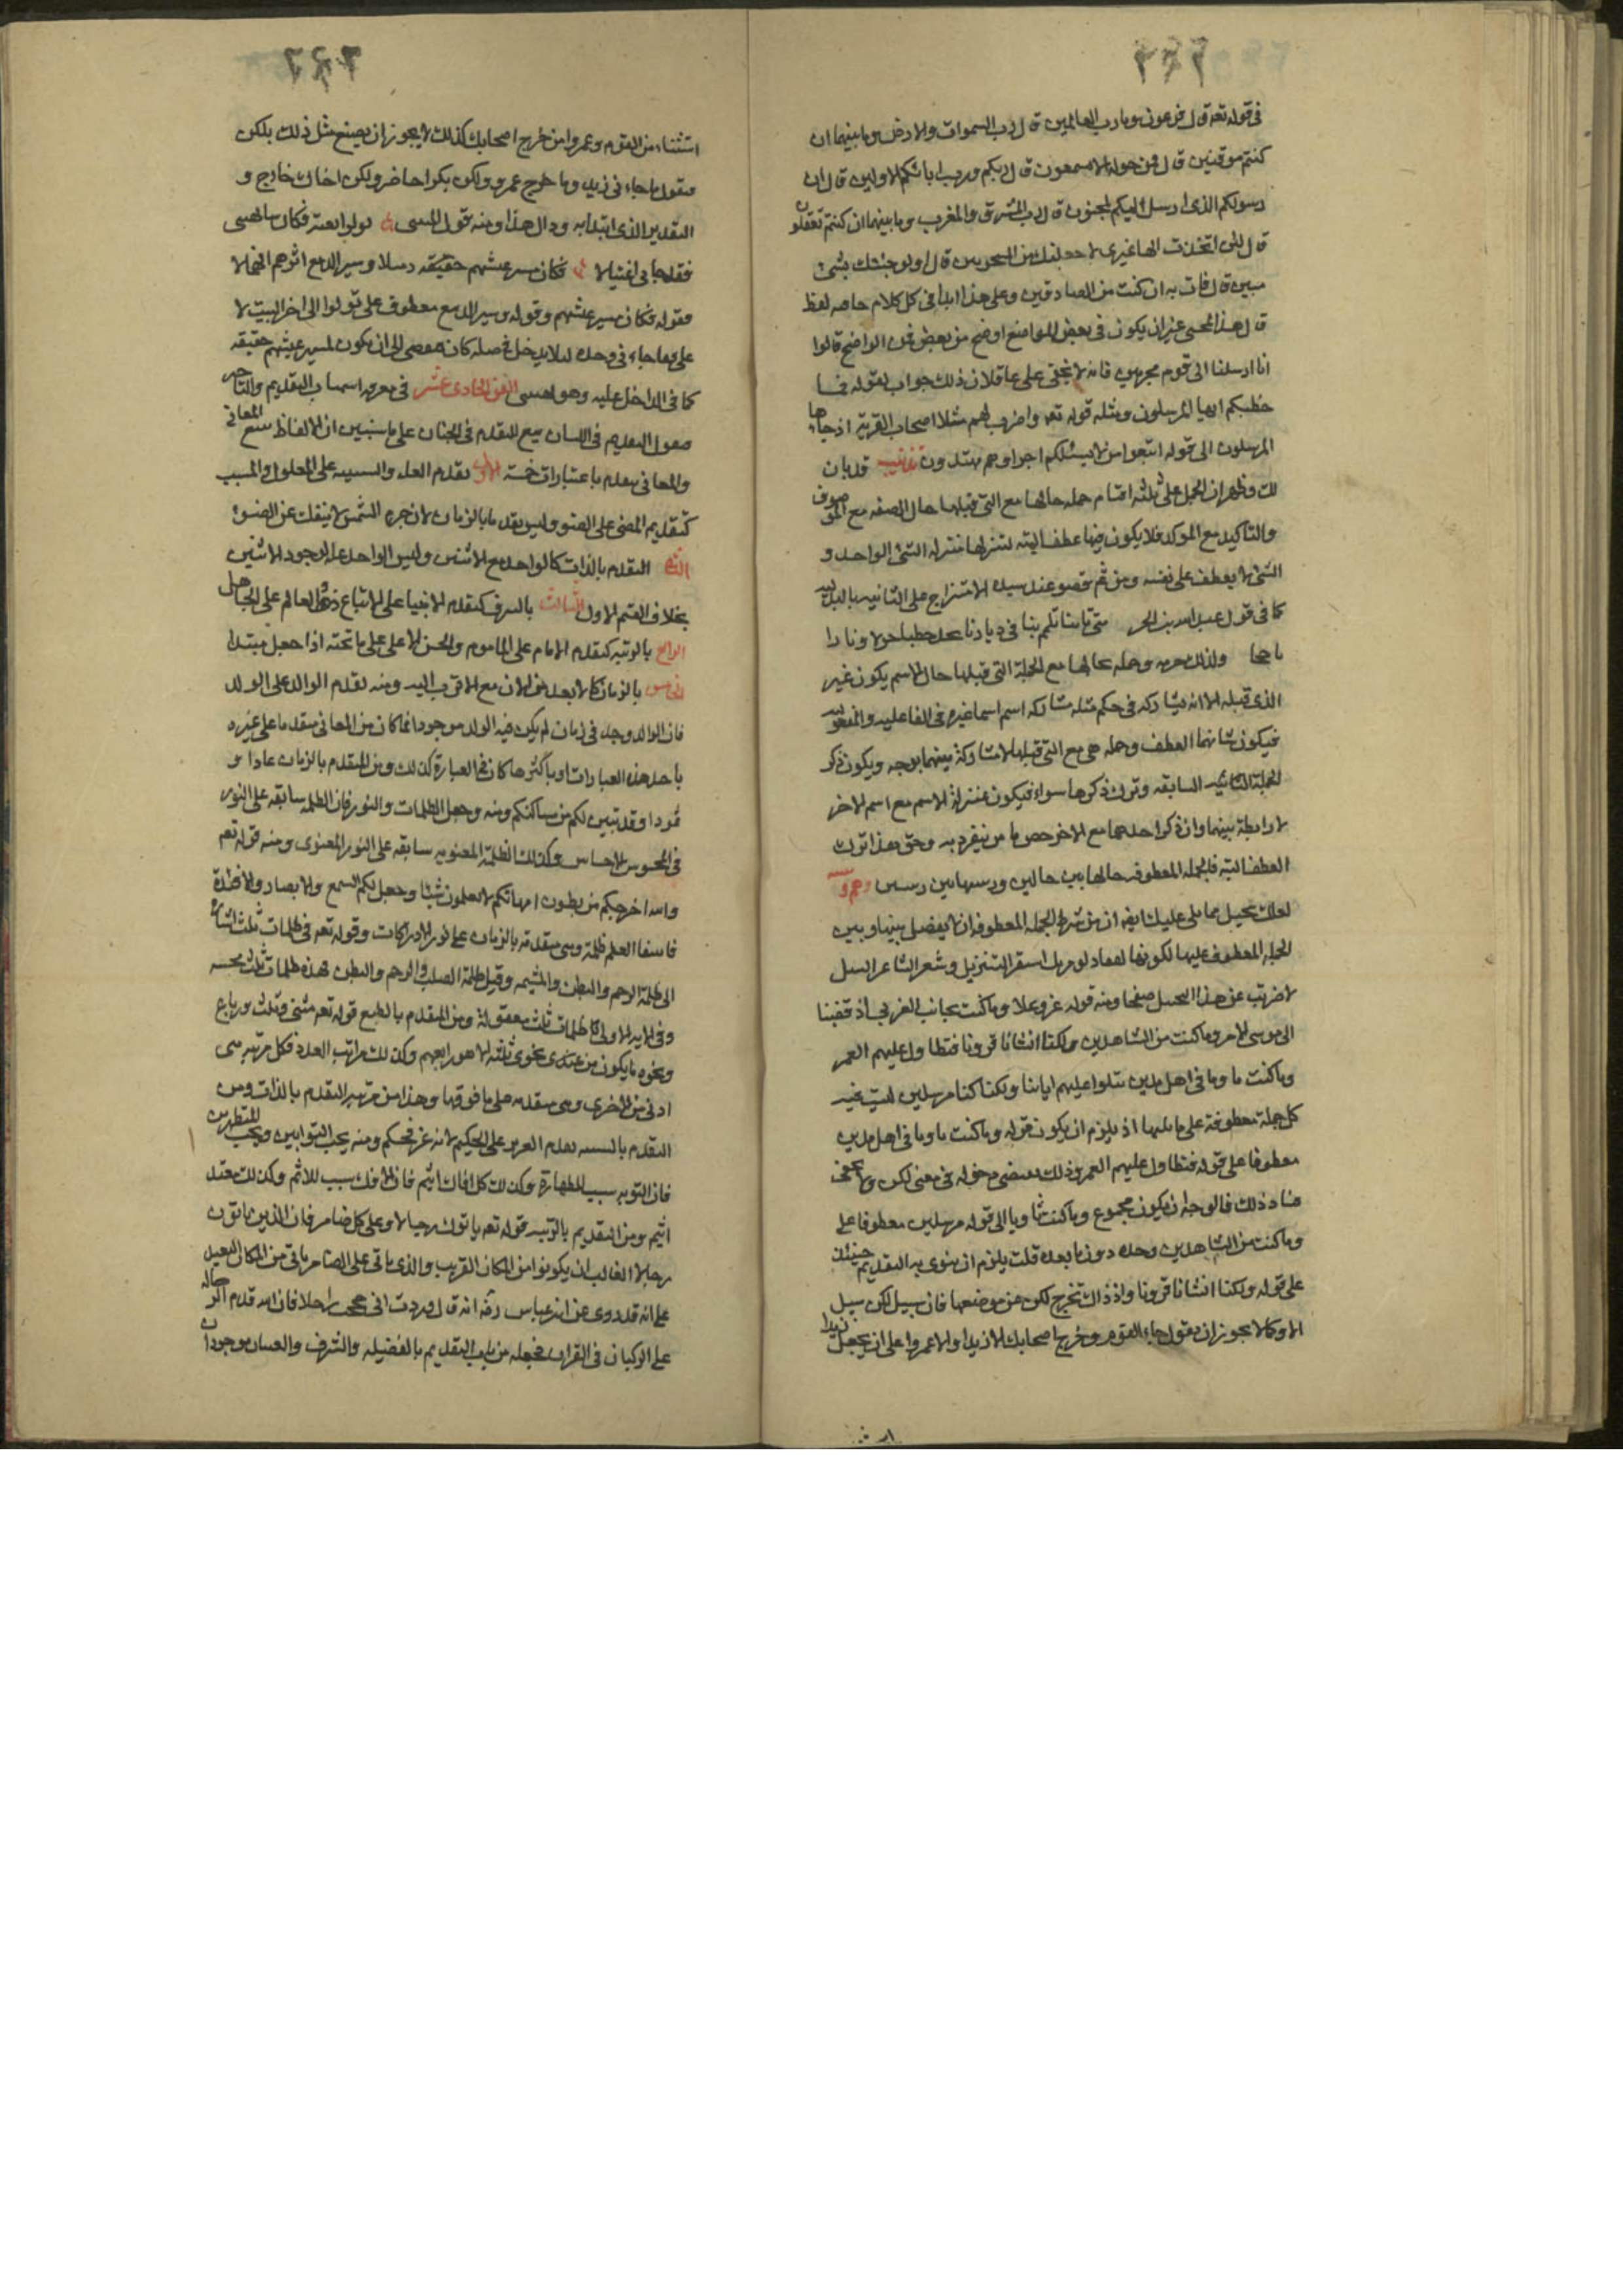 في قوله تعه قال فرعون وما رب العالمين قال رب السموات والارض وما بينهما ان
كنتم موقنين قال لمن حوله الا تسمعون قال ربكم ورب ابائكم الاولين قال ان
رسولكم الذي ارسل اليكم لمجنون قال رب المشرق والمغرب وما بينهما ان كنتم تعقلون
قال لئن اتخذت الها غيري لاجعلنك من المسجونين قال اولو جئتك بشئ
مبين قال فات به ان كنت من الصادقين وعلى هذا ابدا في كل كلام جاء فيه لفظ
قال هذا المجئ غير ان يكون في بعض المواضع اوضح من بعض فمن الواضح قالوا
انا ارسلنا الى قوم مجرمين فانه لا يخفى على عاقل ان ذلك جواب لقوله فما
خطبكم ايها المرسلون ومثله قوله تعه واضرب لهم مثلا اصحاب القرية اذ جاءها
المرسلون الى قوله اتبعوا من لا يسئلكم اجرا وهم مهتدون تذنيب قد بان
لك وظهر ان الجمل على ثلثه اقسام جمله حالها مع التي قبلها حال الصفه مع الموصوف
والتاكيد مع الموكد فلا يكون فيها عطف البته لتنزلها منزله الشئ الواحد و
الشئ لا يعطف على نفسه ومن ثم قصر عند الامتزاج على الثانيه بالبدليه
كما في قول عبيد الله بن الحر متى تاتنا تلمم بنا في ديارنا تجد حطبا جزلا ونارا
تاججا ولذلك جزمه وجمله حالها مع الجملة التي قبلها حال الاسم يكون غير
الذي قبله الا انه يشاركه في حكم مثله مشاركه اسم اسما غيره في الفاعليه والمفعوليه
فيكون شانها العطف وجمله هي مع التي قبلها لا مشاركة بينهما بوجه ويكون ذكر
الجملة الثانيه السابقه وترك ذكرها سواء فيكون بمنزلة الاسم مع اسم لاخر
لا رابطة بينهما وان ذكر احدهما مع الاخر خص بامر ينفرد به وحق هذا ترك
العطف البته فالجمله المعطوفه حالها بين حالين
لعلك تخيل مما يملى عليك انفه ان من شرط الجملة المعطوفه ان لا يفصل بينها وبين
الجمله المعطوف عليها لكونها
لاضربت عن هذا التخيل صفحا ومنه قوله عز وعلا وما كنت بجانب الغربي اذ قضينا
الى موسى الامر وما كنت من الشاهدين ولكنا انشأنا قرونا فتطاول عليهم العمر
وما كنت ثاويا في اهل مدين تتلو عليهم اياتنا ولكنا كنا مرسلين
كل جملة معطوفة على ما يليها اذ يلزم ان يكون قوله وما كنت ثاويا في اهل مدين
معطوفا على قوله فتطاول عليهم العمر وذلك يقتضي دخوله في معنى لكن ولا يخفى
فساد ذلك فالوجه ان يكون مجموع وما كنت ثاويا الى قوله مرسلين معطوفا على
وما كنت من الشاهدين وحده دون ما بعده قلت يلزم ان ينوى به التقديم حينئذ
على قوله ولكنا انشانا قرونا واذ ذاك تخرج لكن عن موضعها فان سبيل لكن سبيل
الا وكما لا يجوز ان تقول جاء القوم وخرج اصحابك الا زيدا والا عمروا على ان يجعل زيدا
استثناء من القوم وعمروا من خرج اصحابك كذلك لا يجوز ان يصنع مثل ذلك بلكن
فتقول ما جاءني زيد وما خرج عمرو ولكن بكرا حاضر ولكن اخاك خارج و
التقدير الذي ابتدا به ودال هذا ومنه قول المتنبي
ففاجاني اغتيالا فكان سير عيسهم حقيقه ذميلا وسير الدمع اثرهم انهمالا
فقوله فكان سير عيسهم وقوله وسير الدمع معطوف على تولوا الى اخر البيت لا
على ففاجاني وحده لئلا يدخل في صله كان فيفضي الى ان يكون لسير عيسهم حقيقه
كما في الداخل عليه وهو الفن الحادي عشر في معرفه اسباب التقديم والتاخير
فنقول التقديم في اللسان تبع للتقدم في الجنان على ما سنبين ان الالفاظ تبع المعاني
والمعاني تتقدم باعتبارات خمسة الاول تقدم العله والسببيه على المعلول والمسبب
كتقديم المضئ على الضوء وليس تقدما بالزمان لان جرم الشمس لا ينفك عن الضوء
الثاني التقدم بالذات كالواحد مع الاثنين وليس الواحد عله لوجود الاثنين
بخلاف القسم الاول الثالث بالشرف كتقدم الانبيا على الاتباع وكذا العالم على الجاهل
الرابع بالرتبه كتقدم الامام على الماموم والجنس الاعلى على ما تحته اذا جعل مبتدا
الخامس بالزمان كالابعد من الان مع الاقرب اليه ومنه تقدم الوالد على الولد
فان الوالد وجد في زمان لم يكن فيه الولد موجودا فما كان من المعاني متقدما على غيره
باحد هذه العبارات او باكثرها كان في العبارة كذلك ومن المتقدم بالزمان عادا و
ثمودا وقد تبين لكم من مساكنكم ومنه وجعل الظلمات والنور فان الظلمه سابقه على النور
في المحسوس الاحساس وكذلك الظلمة المعنويه سابقه على النور المعنوي ومنه قوله تعه
والله اخرجكم من بطون امهاتكم لا تعلمون شيئا وجعل لكم السمع والابصار والافئدة
فانتفا العلم ظلمة وهي متقدمة بالزمان على نور الادراكات وقوله تعه في ظلمات ثلث اشارة
الى ظلمة الرحم والبطن والمشيمه وقيل ظلمة الصلب والرحم والبطن فهذه ظلمات ثلث محسه
وفي الايه الاولى ظلمات ثلث معقولة ومن المتقدم بالطبع قوله تعه مثنى وثلث ورباع
ونحوه ما يكون من نجوى ثلثه الا هو رابعهم وكذلك مراتب العدد فكل مرتبه هي
ادنى من الاخرى وهي متقدمه على ما فوقها وهذا من مرتبه التقدم بالذات ومن
التقدم بالسببيه تقدم العزيز على الحكيم لانه عز فحكم ومنه يحب التوابين ويحب المتطهرين
فان التوبه سبب للطهارة وكذلك كل افاك اثيم فان الافك سبب للاثم وكذلك معتد
اثيم ومن التقديم بالرتبه قوله تعه ياتوك رجالا وعلى كل ضامر فان الذين ياتون
رجالا الغالب ان يكونوا من المكان القريب والذي ياتي على الضامر ياتي من المكان البعيد
على انه قد روى عن ابن عباس رضه انه قال وددت اني حججت راجلا فان الله قدم الرجاله
على الركبان في القران فجعله من باب التقديم بالفضيله والشرف والمعنيان موجودان